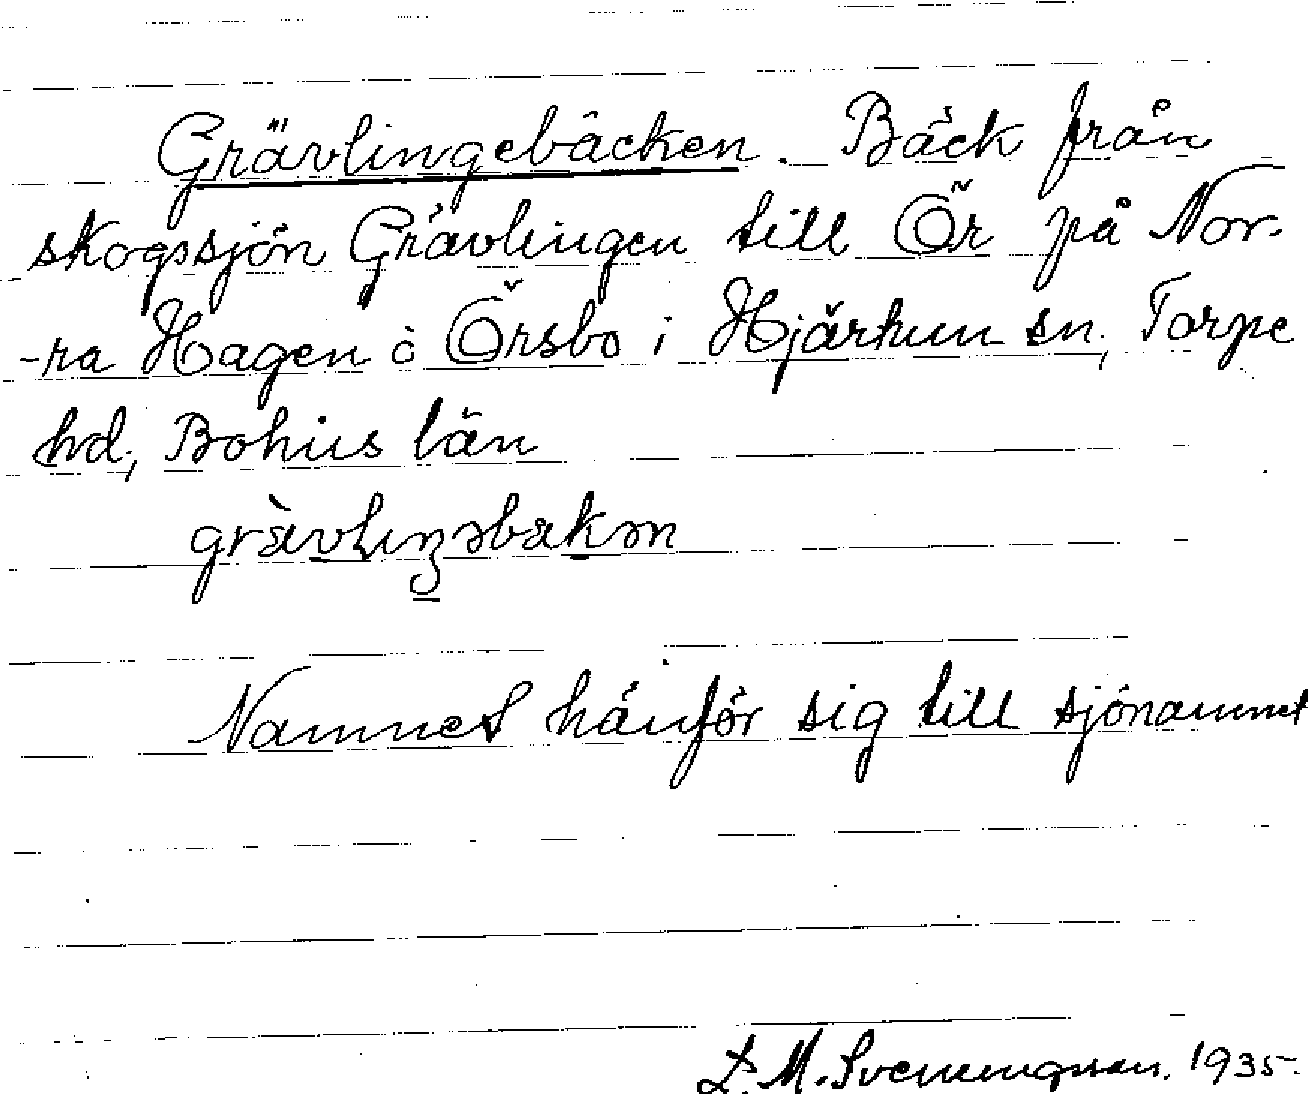 Grävlingebäcken. Bäck från
skogssjön Grävlingen till Ör på Nor-
-ra Hagen o Örsbo i Hjärtum sn, Torpe
hd, Bohus län
Namnet hänför sig till sjönamnet
D. M. Svenungsson. 1935.